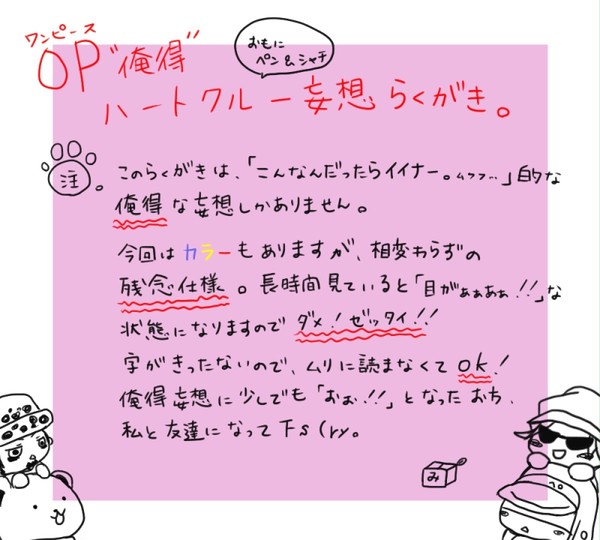 ワンピース
OP"俺得"
おもに
ペン&シャチ
ハートクルー妄想らくがき。
注。
このらくがきは、「こんなんだったらイイナー。ムフフ…」的な
俺得な妄想しかありません。
今回はカラーもありますが、相変わらずの
残念仕様。長時間見ていると「目がぁぁあぁぁ!!」な
状態になりますので ダメ!ゼッタイ!!
字がきったないので、ムリに読まなくてok!
俺得妄想に少しでも「おぉ!!」となったおち、
私と友達になって下s(ry。
み